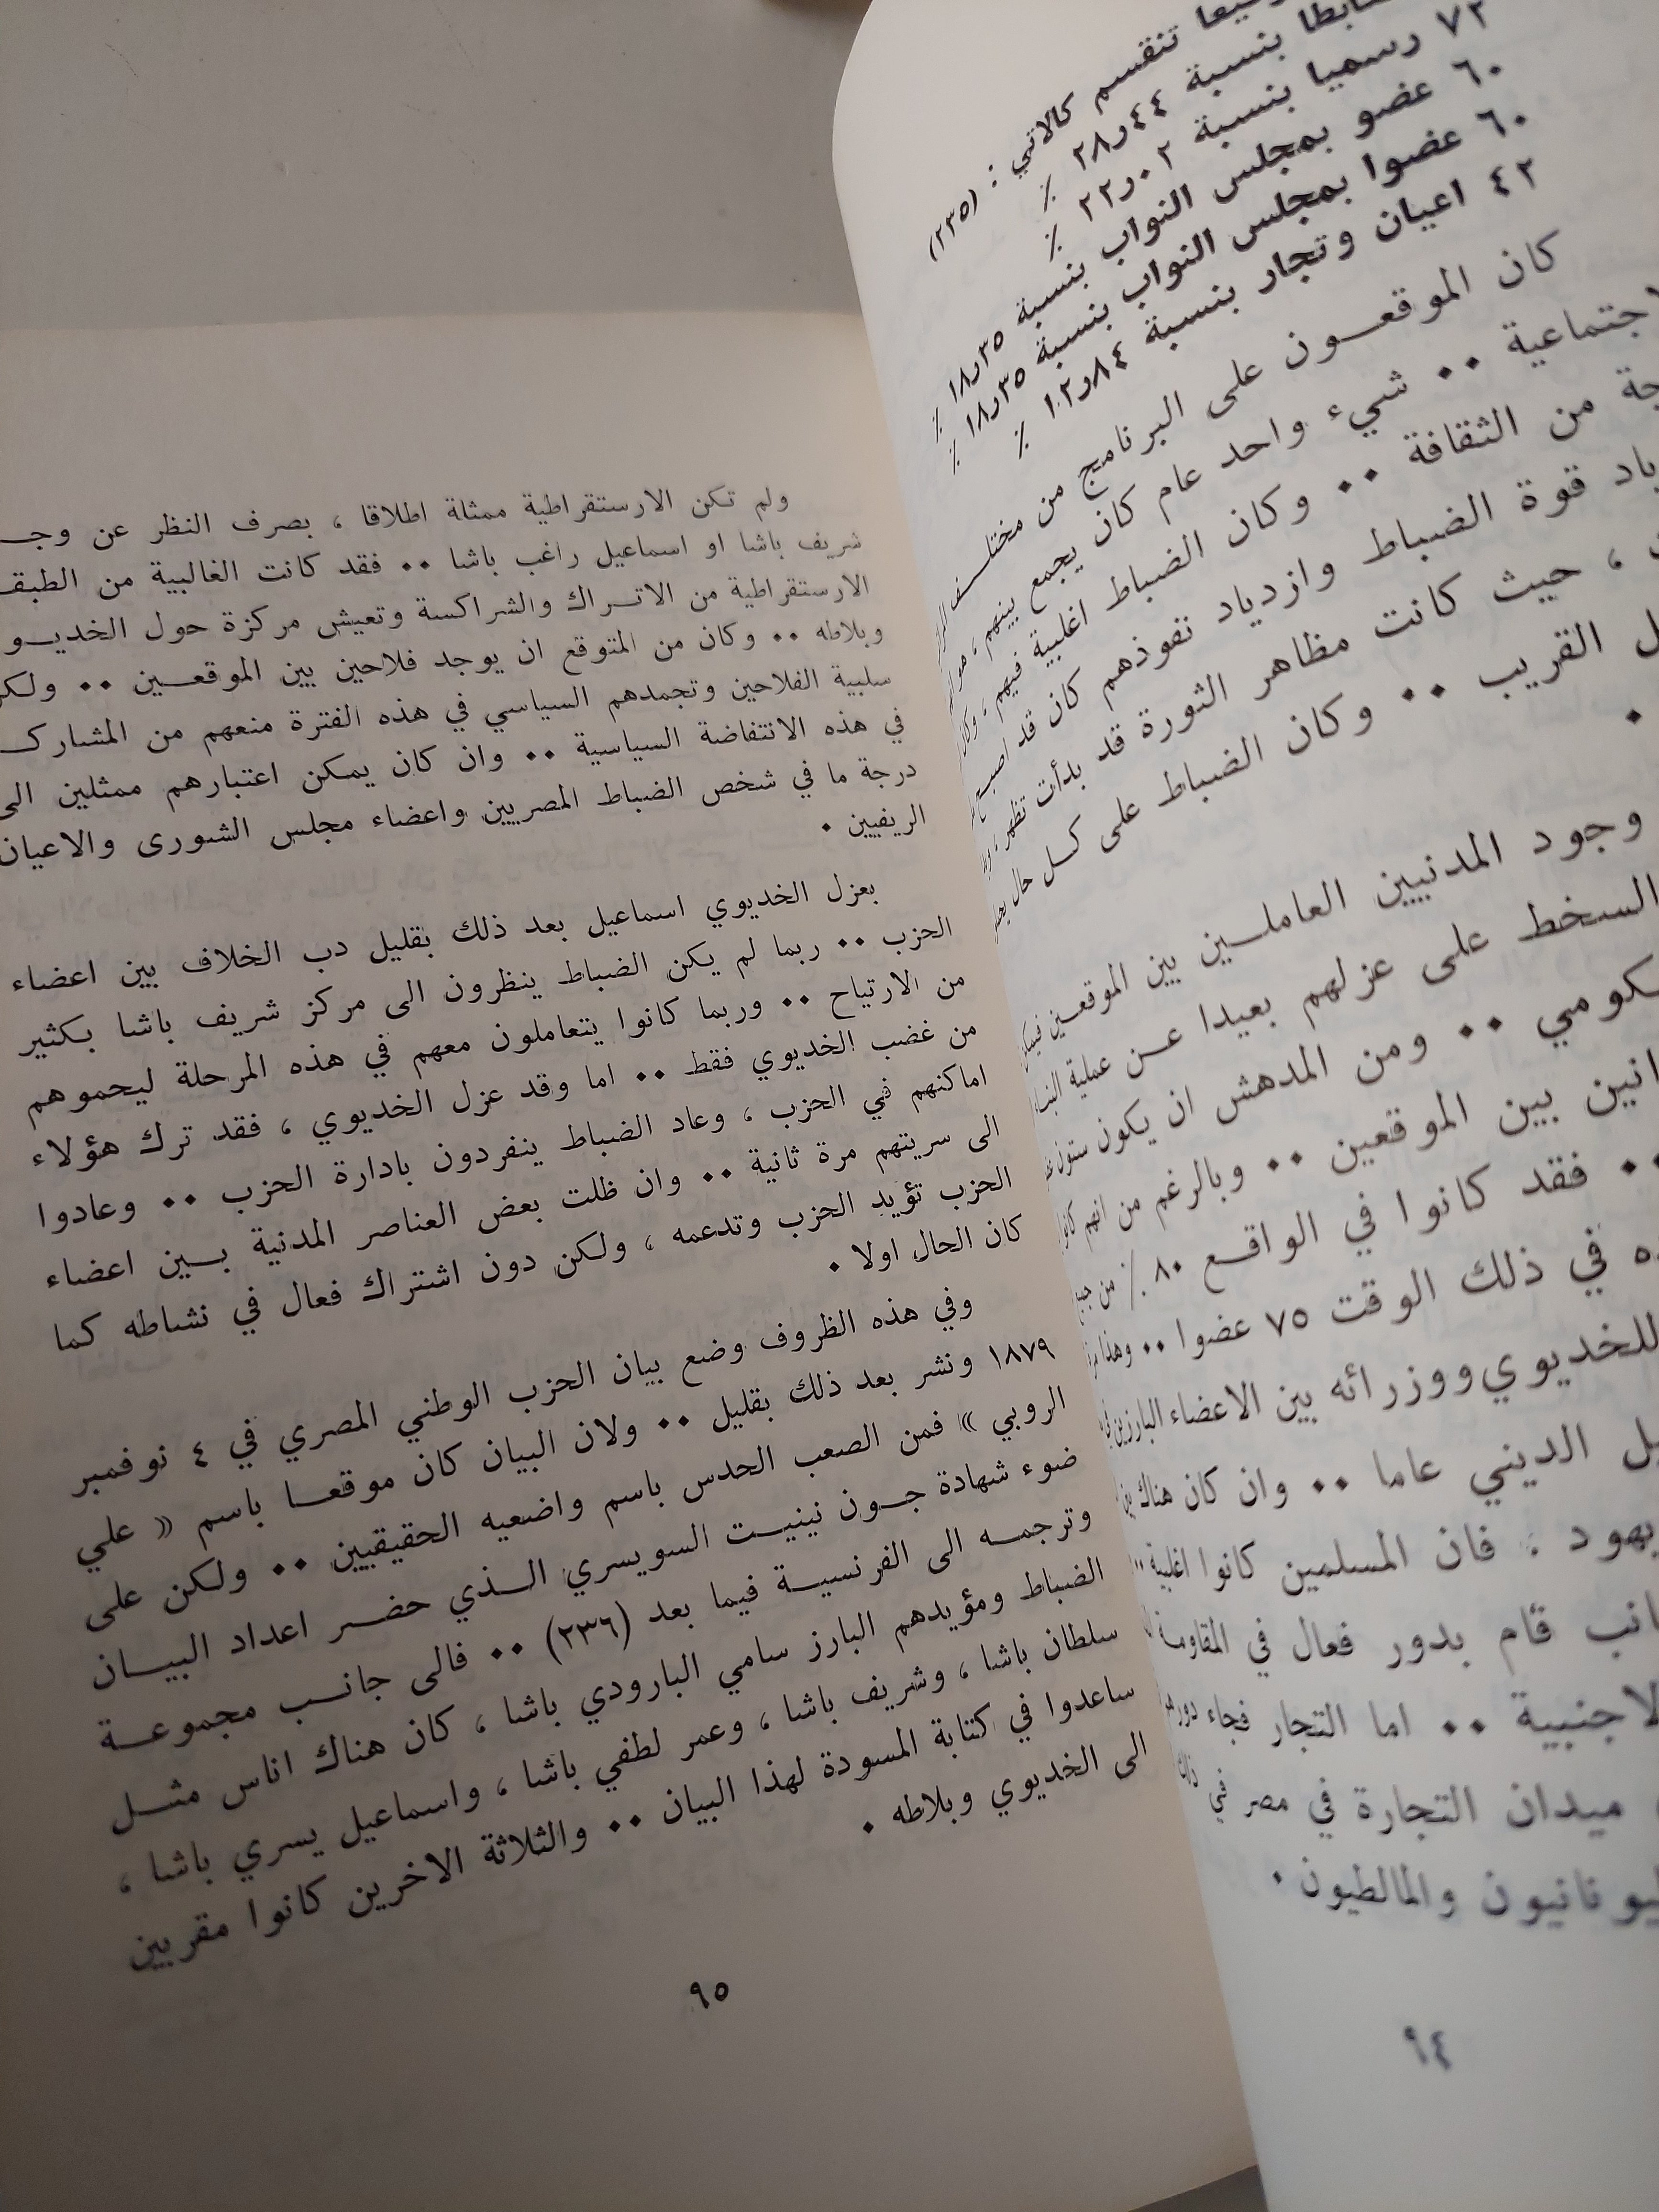 تنقسم كالاتي : (٢٣٥)
بنسبة ٤٤ر٢٨ ٪
٧٢ رسميا بنسبة ٠٢ر٢٢ ٪
٦٠ عضو بمجلس النواب بنسبة ٣٥ر١٨ ٪
٦٠ عضوا بمجلس النواب بنسبة ٣٥ر١٨ ٪
٤٢ اعيان وتجار بنسبة ٨٤ر١٢ ٪
كان الموقعون على البرنامج من مختلف
شيء واحد عام كان يجمع بينهم ،
من الثقافة ٠٠ وكان الضباط اغلبية فيهم ،
قوة الضباط وازدياد نفوذهم كان قد اصبح
، حيث كانت مظاهر الثورة قد بدأت تظهر ،
القريب ٠٠ وكان الضباط على كل حال
٠
وجود المدنيين العاملين بين الموقعين
السخط على عزلهم بعيدا عن عملية
٠٠ ومن المدهش ان يكون ستون
بين الموقعين ٠٠ وبالرغم من انهم كانوا
٠٠ فقد كانوا في الواقع ٨٠ ٪ من
في ذلك الوقت ٧٥ عضوا ٠٠
للخديوي ووزرائه بين الاعضاء البارزين
الديني عاما ٠٠ وان كان هناك
فان المسلمين كانوا اغلبية ٠٠
قام بدور فعال في المقاومة
٠٠ اما التجار فجاء
ميدان التجارة في مصر في
والمالطيون ٠
٩٤
ولم تكن الارستقراطية ممثلة اطلاقا ، بصرف النظر عن
شريف باشا او اسماعيل راغب باشا ٠٠ فقد كانت الغالبية من
الارستقراطية من الاتراك والشراكسة وتعيش مركزة حول
وبلاطه ٠٠ وكان من المتوقع ان يوجد فلاحين بين الموقعين ٠٠
سلبية الفلاحين وتجمدهم السياسي في هذه الفترة منعهم من
في هذه الانتفاضة السياسية ٠٠ وان كان يمكن اعتبارهم ممثلين الى
درجة ما في شخص الضباط المصريين واعضاء مجلس الشورى والاعيان
الريفيين ٠
بعزل الخديوي اسماعيل بعد ذلك بقليل دب الخلاف بين اعضاء
الحزب ٠٠ ربما لم يكن الضباط ينظرون الى مركز شريف باشا بكثير
من الارتياح ٠٠ وربما كانوا يتعاملون معهم في هذه المرحلة ليحموهم
من غضب الخديوي فقط ٠٠ اما وقد عزل الخديوي ، فقد ترك هؤلاء
اماكنهم في الحزب ، وعاد الضباط ينفردون بادارة الحزب ٠٠ وعادوا
الى سريتهم مرة ثانية ٠٠ وان ظلت بعض العناصر المدنية بين اعضاء
الحزب تؤيد الحزب وتدعمه ، ولكن دون اشتراك فعال في نشاطه كما
كان الحال اولا ٠
وفي هذه الظروف وضع بيان الحزب الوطني المصري في ٤ نوفمبر
١٨٧٩ ونشر بعد ذلك بقليل ٠٠ ولان البيان كان موقعا باسم « علي
الروبي » فمن الصعب الحدس باسم واضعيه الحقيقيين ٠٠ ولكن على
ضوء شهادة جون نينيت السويسري الذي حضر اعداد البيان
وترجمه الى الفرنسية فيما بعد (٢٣٦) ٠٠ فالى جانب مجموعة
الضباط ومؤيدهم البارز سامي البارودي باشا ، كان هناك اناس مثل
سلطان باشا ، وشريف باشا ، وعمر لطفي باشا ، واسماعيل يسري باشا ،
ساعدوا في كتابة المسودة لهذا البيان ٠٠ والثلاثة الاخرين كانوا مقربين
الى الخديوي وبلاطه ٠
٩٥